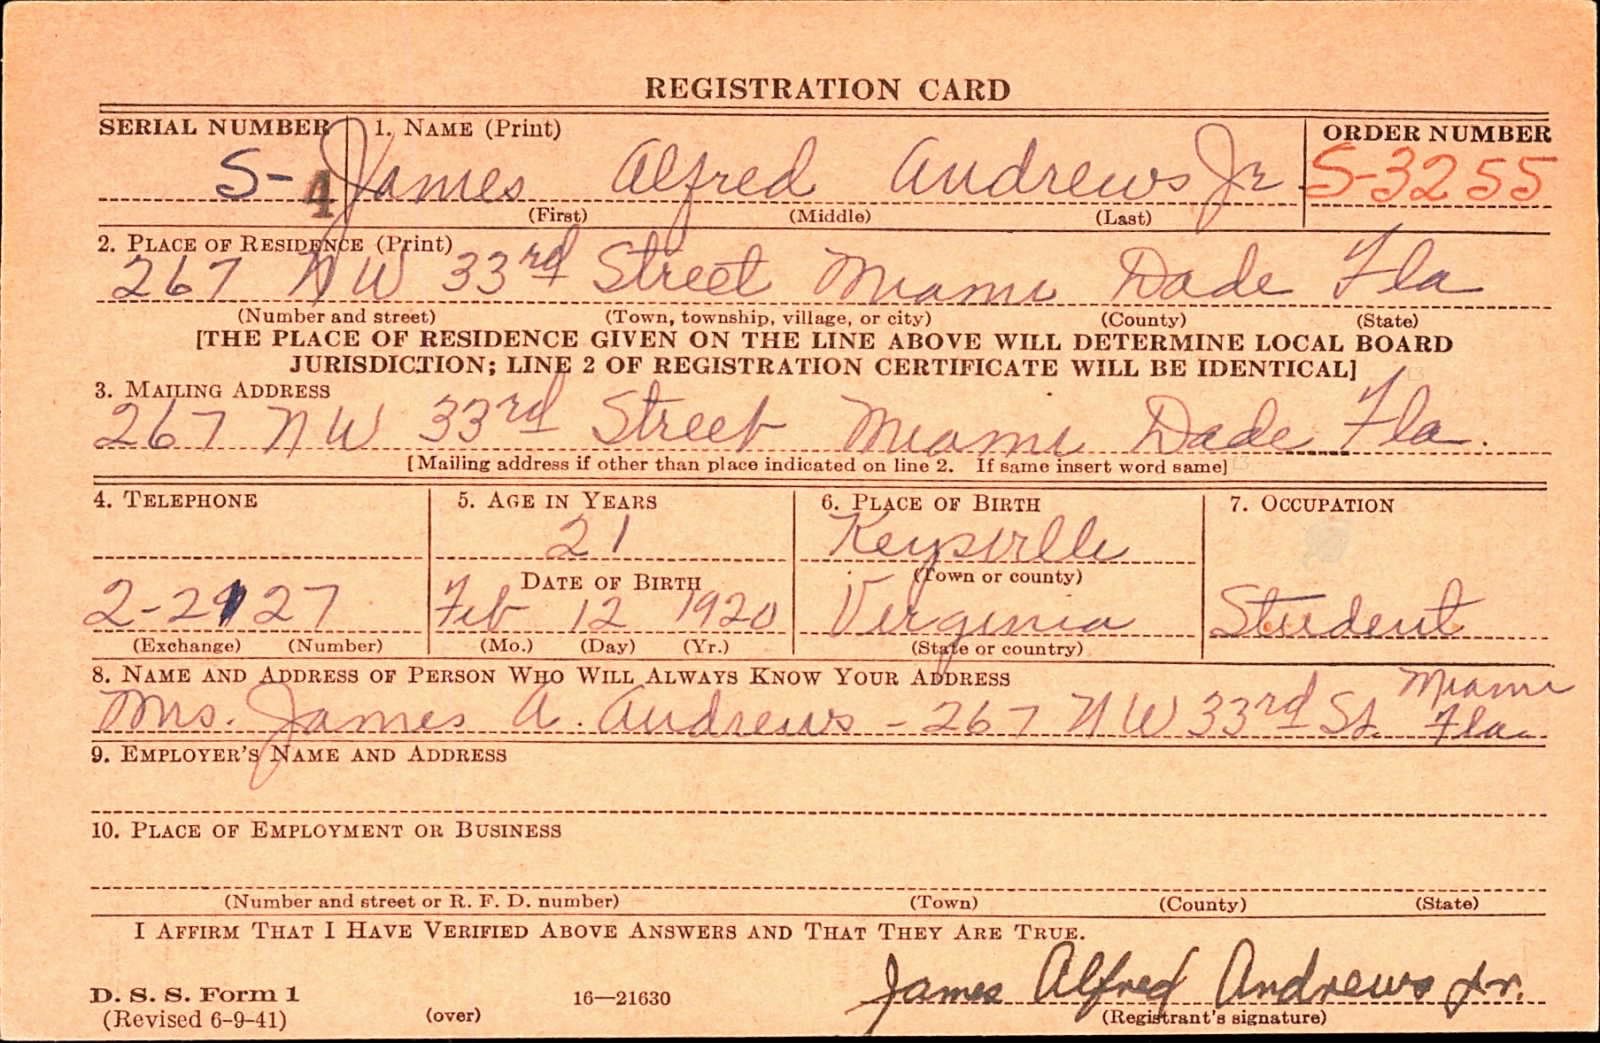 REGISTRATION CARD
SERIAL NUMBER 1. NAME (Print) ORDER NUMBER
S-4 James Alfred Andrews Jr S-3255
(First) (Middle) (Last)
2. PLACE OF RESIDENCE (Print)
267 NW 33rd Street Miami Dade Fla
(Number and street) (Town, township, village, or city) (County) (State)
[THE PLACE OF RESIDENCE GIVEN ON THE LINE ABOVE WILL DETERMINE LOCAL BOARD
JURISDICTION; LINE 2 OF REGISTRATION CERTIFICATE WILL BE IDENTICAL]
3. MAILING ADDRESS
267 NW 33rd Street Miami Dade Fla.
[Mailing address if other than place indicated on line 2. If same insert word same]
4. TELEPHONE 5. AGE IN YEARS 6. PLACE OF BIRTH 7. OCCUPATION
21 Keysville
DATE OF BIRTH (Town or county)
Feb 12 1920 Virginia Student
(Exchange) (Number) (Mo.) (Day) (Yr.) (State or country)
8. NAME AND ADDRESS OF PERSON WHO WILL ALWAYS KNOW YOUR ADDRESS
Mrs. James A. Andrews - 267 NW 33rd St. Miami Fla.
9. EMPLOYER'S NAME AND ADDRESS
10. PLACE OF EMPLOYMENT OR BUSINESS
(Number and street or R. F. D. number) (Town) (County) (State)
I AFFIRM THAT I HAVE VERIFIED ABOVE ANSWERS AND THAT THEY ARE TRUE.
James Alfred Andrews Jr.
D. S. S. Form 1 16—21630
(Revised 6-9-41) (over) (Registrant's signature)